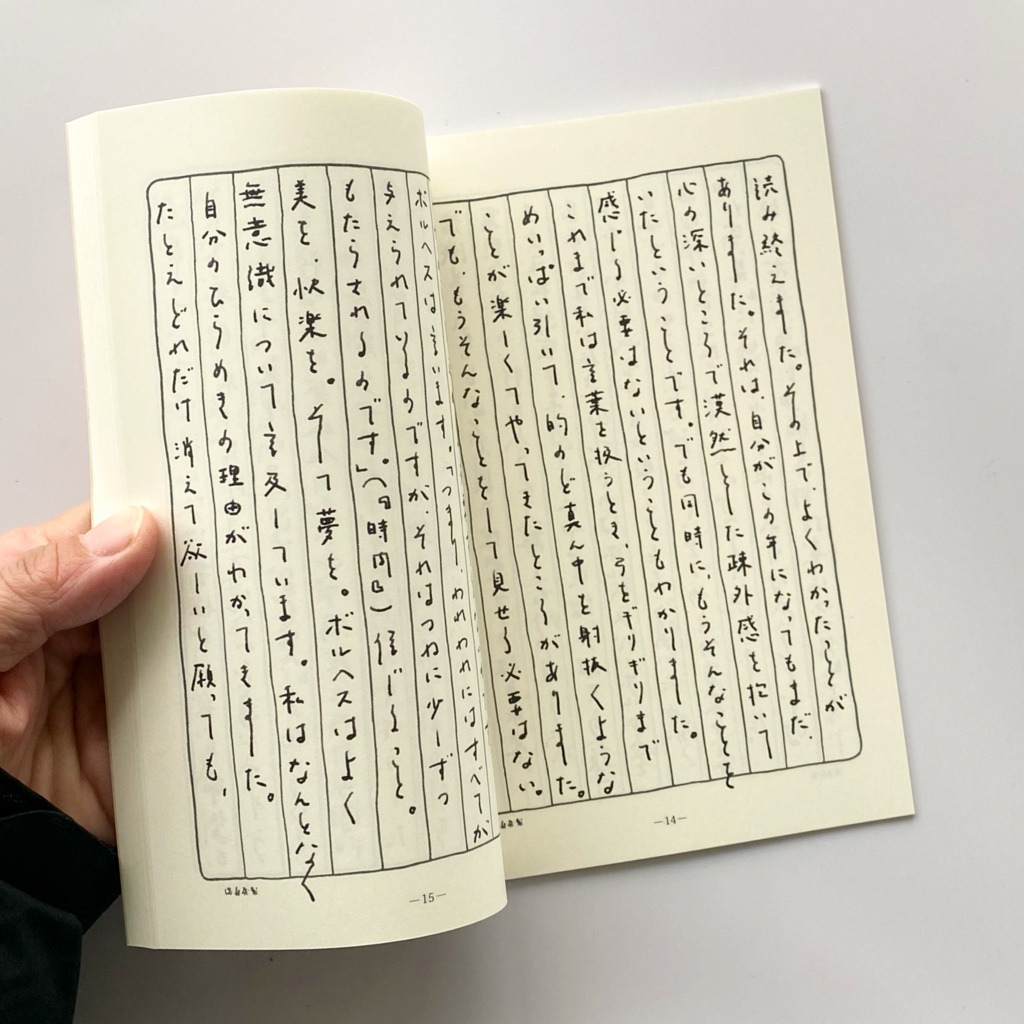 読み終えました。その上で、よくわかったことが
ありました。それは、自分がこの年になってもまだ、
心の深いところで漠然とした疎外感を抱いて
いたということです。でも同時に、もうそんなことを
感じる必要はないということもわかりました。
これまで私は言葉を扱うとき、弓をギリギリまで
めいっぱい引いて、的のど真ん中を射抜くような
ことが楽しくてやってきたところがありました。
でも、もうそんなことをして見せる必要はない。
—14—
ボルヘスは言います。「つまり、われわれにはすべてが
与えられているのですが、それはつねに少しずつ
もたらされるのです。」(『時間』)信じること。
美を、快楽を。そして夢を。ボルヘスはよく
無意識について言及しています。私はなんとなく
自分のひらめきの理由がわかってきました。
たとえどれだけ消えて欲しいと願っても、
—15—